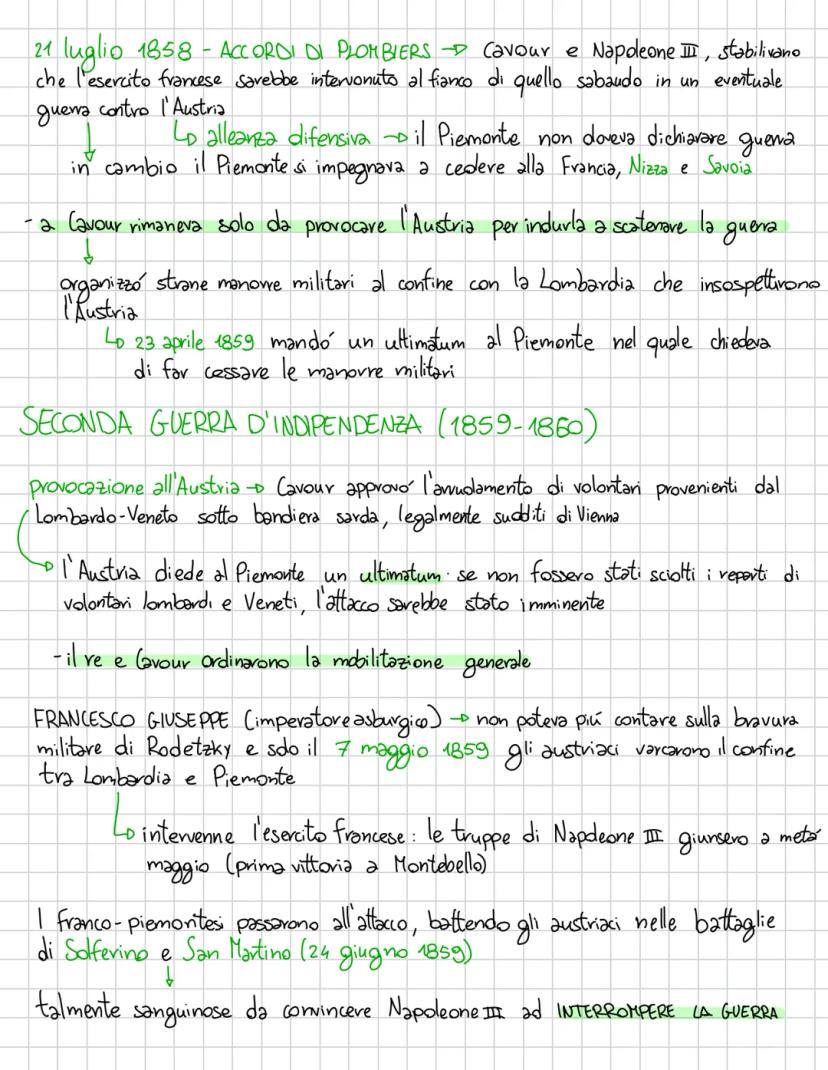 21 luglio 1858 - ACCORDI DI PLOMBIERS → Cavour e Napoleone III, stabilivano
che l'esercito francese sarebbe intervenuto al fianco di quello sabaudo in un eventuale
guerra contro l'Austria
↳ alleanza difensiva → il Piemonte non doveva dichiarare guerra
in cambio il Piemonte si impegnava a cedere alla Francia, Nizza e Savoia
- a Cavour rimaneva solo da provocare l'Austria per indurla a scatenare la guerra
organizzó strane manovre militari al confine con la Lombardia che insospettirono
l'Austria
↳ 23 aprile 1859 mandó un ultimatum al Piemonte nel quale chiedeva
di far cessare le manovre militari
SECONDA GUERRA D'INDIPENDENZA (1859-1860)
provocazione all'Austria → Cavour approvó l'arruolamento di volontari provenienti dal
Lombardo-Veneto sotto bandiera sarda, legalmente sudditi di Vienna
→ l'Austria diede al Piemonte un ultimatum: se non fossero stati sciolti i reparti di
volontari lombardi e Veneti, l'attacco sarebbe stato imminente
- il re e Cavour ordinarono la mobilitazione generale
FRANCESCO GIUSEPPE (imperatore asburgico) → non poteva piú contare sulla bravura
militare di Radetzky e solo il 7 maggio 1859 gli austriaci varcarono il confine
tra Lombardia e Piemonte
↳ intervenne l'esercito francese: le truppe di Napoleone III giunsero a metá
maggio (prima vittoria a Montebello)
I franco-piemontesi passarono all'attacco, battendo gli austriaci nelle battaglie
di Solferino e San Martino (24 giugno 1859)
talmente sanguinose da convincere Napoleone III ad INTERROMPERE LA GUERRA